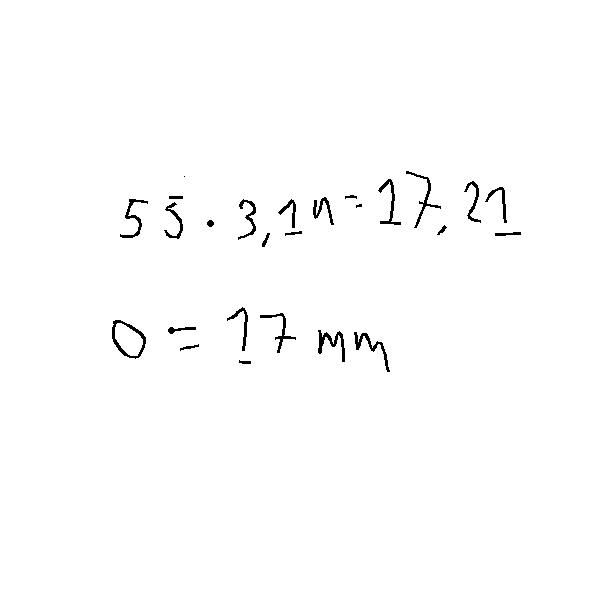 55 · 3,14 = 17,21
O = 17 mm